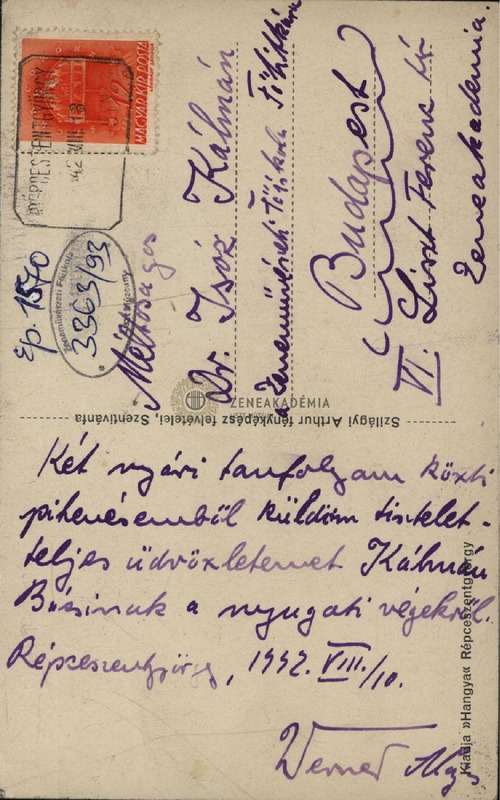 MAGYAR KIR. POSTA
12
RÉPCESZENTGYÖRGY
42 VIII 13
Ép. 1570
Zeneművészeti Főiskola
3363/93
Méltóságos
Dr. Isóz Kálmán
a Zeneművészeti Főiskola Főtitkára
Budapest
VI. Liszt Ferenc tér
Zeneakadémia.
ZENEAKADÉMIA
Szilágyi Arthur fényképész felvételei, Szentivánfa
Két nyári tanfolyam közti
pihenésemből küldöm tisztelet-
teljes üdvözletemet Kálmán
Bácsinak a nyugati végekről.
Répceszentgyörgy, 1942. VIII./10.
Werner Alajos
Kiadja »Hangya« Répceszentgyörgy